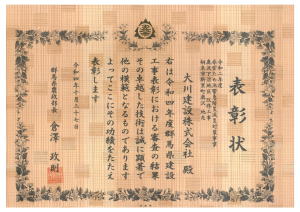 表彰状
大川建設株式会社 殿
右は令和四年度群馬県建設
工事表彰における審査の結果
その卓越した技術は誠に顕著で
他の模範となるものであります
よってここにその功績をたたえ
表彰します
令和四年十月二十七日
群馬県農政部長 倉澤 政則